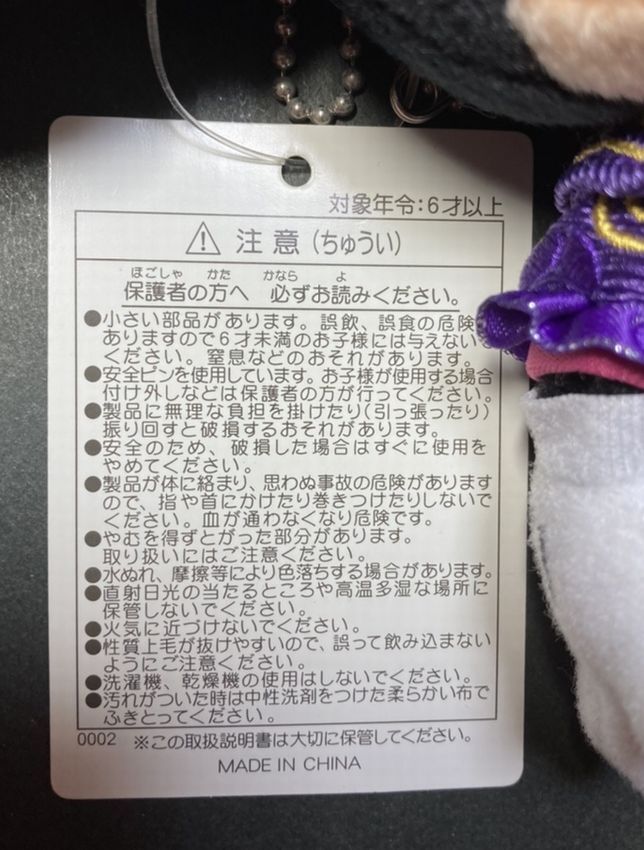 対象年令:6才以上
⚠ 注意(ちゅうい)
ほごしゃ かた かなら よ
保護者の方へ 必ずお読みください。
●小さい部品があります。誤飲、誤食の危険
ありますので6才未満のお子様には与えない
ください。窒息などのおそれがあります。
●安全ピンを使用しています。お子様が使用する場合
付け外しなどは保護者の方が行ってください。
●製品に無理な負担を掛けたり(引っ張ったり)
振り回すと破損するおそれがあります。
●安全のため、破損した場合はすぐに使用を
やめてください。
●製品が体に絡まり、思わぬ事故の危険があります
ので、指や首にかけたり巻きつけたりしないで
ください。血が通わなくなり危険です。
●やむを得ずとがった部分があります。
取り扱いにはご注意ください。
●水ぬれ、摩擦等により色落ちする場合があります。
●直射日光の当たるところや高温多湿な場所に
保管しないでください。
●火気に近づけないでください。
●性質上毛が抜けやすいので、誤って飲み込まない
ようにご注意ください。
●洗濯機、乾燥機の使用はしないでください。
●汚れがついた時は中性洗剤をつけた柔らかい布で
ふきとってください。
0002 ※この取扱説明書は大切に保管してください。
MADE IN CHINA